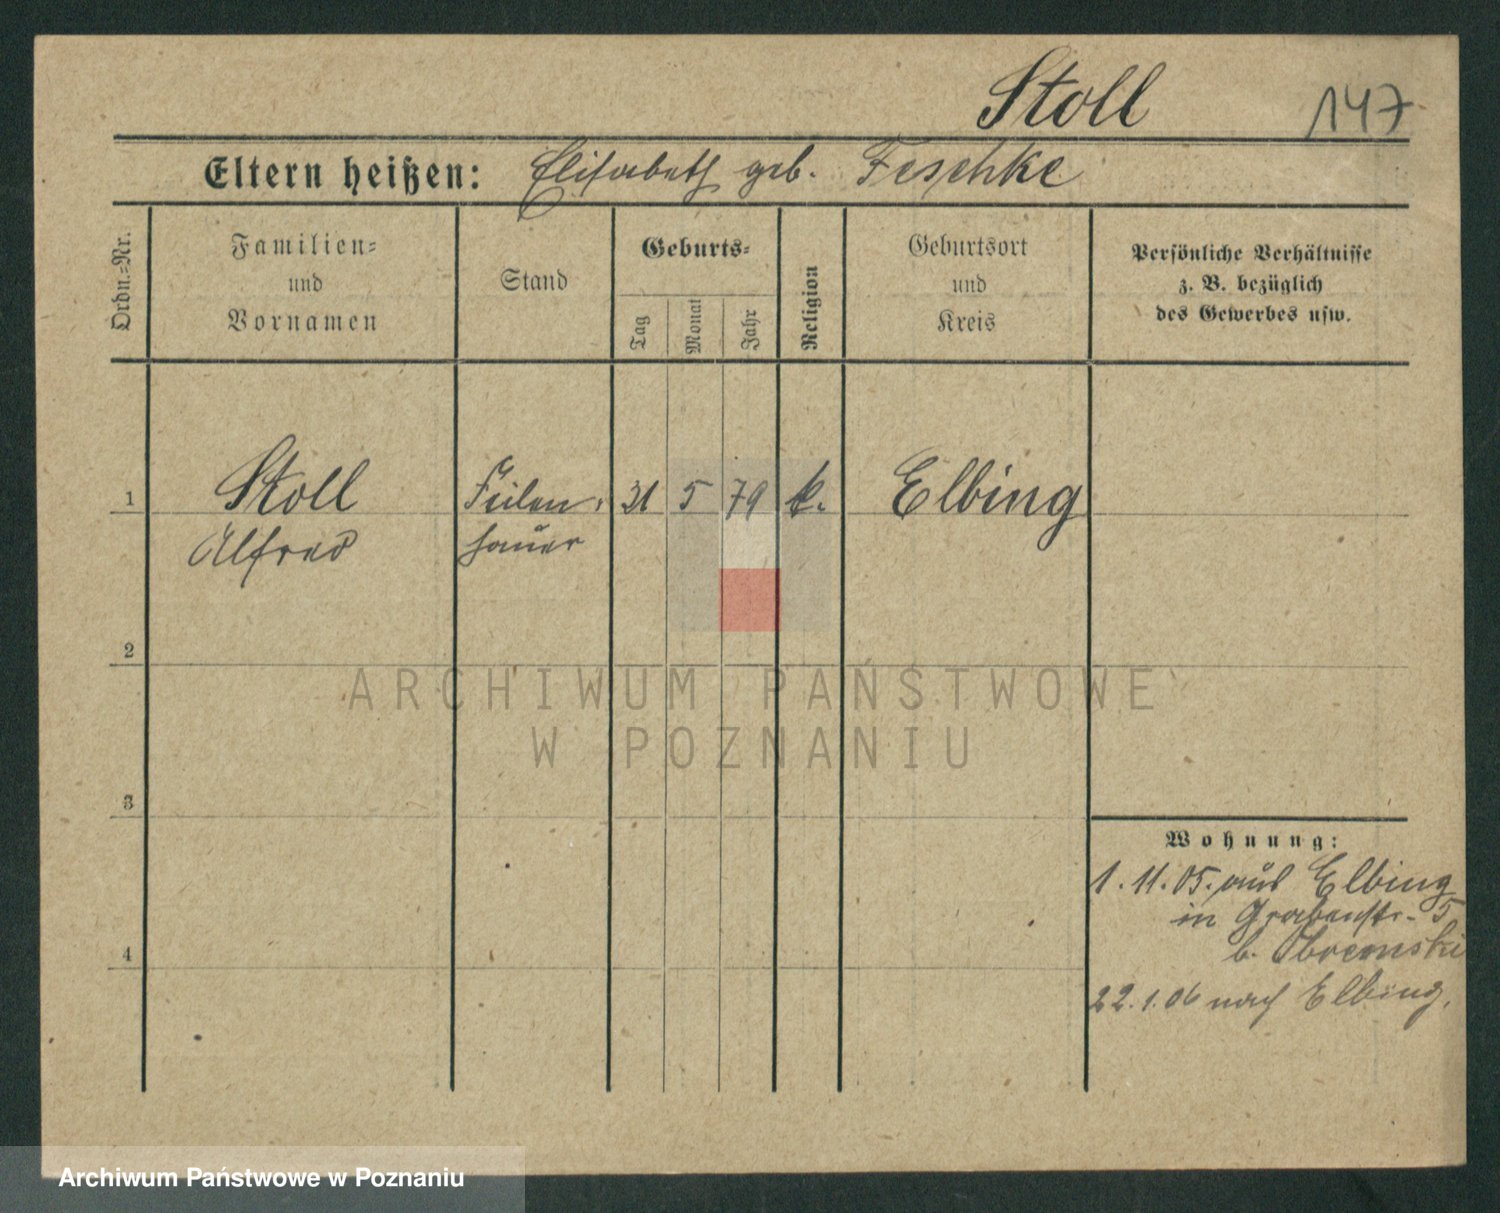 Stoll
147
Eltern heißen: Elisabeth geb. Feschke
Ordn.=Nr.
Familien=
und
Vornamen
Stand
Geburts=
Tag
Monat
Jahr
Religion
Geburtsort
und
Kreis
Persönliche Verhältnisse
z. B. bezüglich
des Gewerbes usw.
1 Stoll Feilen= 31 5 79 k. Elbing
Alfred hauer
2
3
4
Wohnung:
1. 11. 05. aus Elbing
in Grabenstr. 5
b. Obremski
22. 1. 06 nach Elbing.
ARCHIWUM PAŃSTWOWE
W POZNANIU
Archiwum Państwowe w Poznaniu